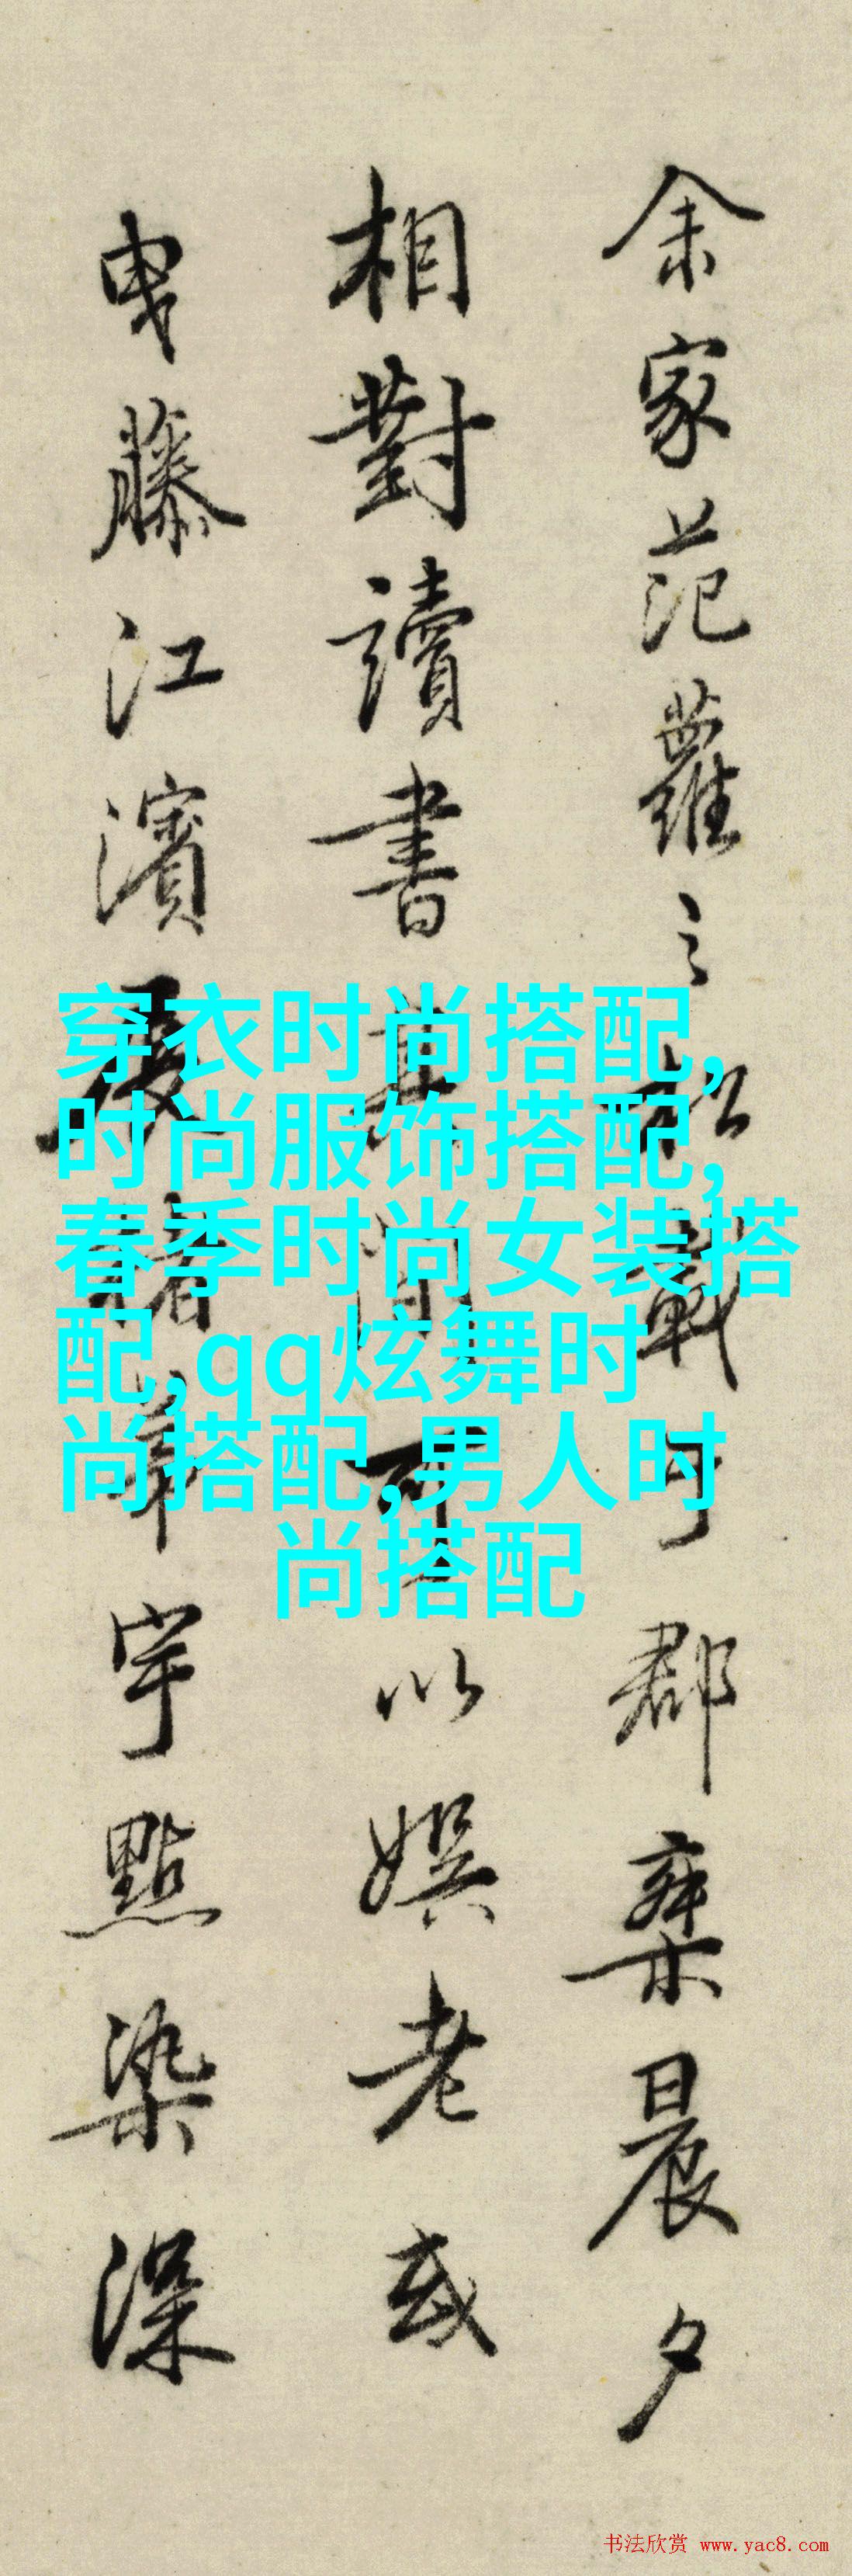 余家范蘿之松于郡晨夕
相對讀書其間可以娛老或
曳藤江濱茅宇點染深
穿衣时尚搭配,
时尚服饰搭配,
春季时尚女装搭
配,qq炫舞时
尚搭配,男人时
尚搭配
书法欣赏 www.yac8.com